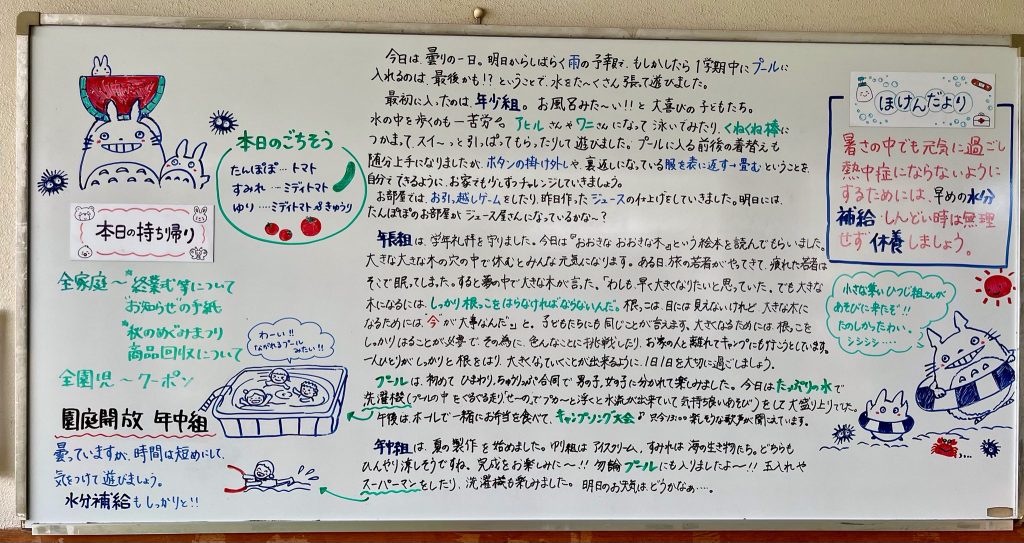 本日のごちそう
たんぽぽ…トマト
すみれ…ミディトマト
ゆり…ミディトマト&きゅうり
本日の持ち帰り
全家庭〜*終業式等について
お知らせの手紙
*秋のめぐみまつり
商品回収について
全園児〜クーポン
園庭開放 年中組
曇っていますが、時間は短めにして、
気をつけて遊びましょう。
水分補給もしっかりと!!
わーい!!
ながれるプール
みたい!!
今日は、曇りの一日。明日からしばらく雨の予報で、もしかしたら1学期中にプールに
入れるのは、最後かも!?ということで、水をた〜くさん張って遊びました。
最初に入ったのは、年少組。お風呂みた〜い!!と大喜びの子どもたち。
水の中を歩くのも一苦労。アヒルさんやワニさんになって泳いでみたり、くねくね棒に
つかまって、スイ〜っと引っぱってもらったりして遊びました。プールに入る前後の着替えも
随分上手になりましたが、ボタンの掛け外しや裏返しになっている服を表に返す→畳むということを
自分でできるように、お家でも少しずつチャレンジしていきましょう。
お部屋では、お引っ越しゲームをしたり、昨日作ったジュースの仕上げをしていました。明日には、
たんぽぽのお部屋がジュース屋さんになっているかな〜?
年長組は、学年礼拝を守りました。今日は『おおきな おおきな木』という絵本を読んでもらいました。
大きな大きな木の穴の中で休むとみんな元気になります。ある日、旅の若者がやってきて、疲れた若者は
そこで眠してしまいました。すると夢の中で大きな木が言った。「わしも、早く大きくなりたいと思っていた。でも大きな
木になるには、しっかり根っこをはらなければならないんだ。根っこは、目には見えないけれど、大きな木に
なるためには、"今"が大事なんだ」と。子どもたちにも同じことが言えます。大きくなるためには、根っこを
しっかりはることが必要で、その為に、色んなことに挑戦したり、お家の人と離れてキャンプにも行こうとしています。
一人ひとりがしっかりと根をはり、大きくなっていくことが出来るように、1日1日を大切に過ごしましょう。
プールは、初めて ひまわり、ちゅうりっぷ合同で 男の子、女の子に分かれて楽しみました。今日は、たっぷりの水で
洗濯機(プールの中をぐるぐる走り、せーの、でプカーと浮くと水流が出来ていて気持ち良いあそび)をして大盛り上りでした。
午後は、ホールで一緒にお弁当を食べて、キャンプソング大会♪只今、楽しそうな歌声が聞こえています。
年中組は、夏の製作を始めました。ゆり組はアイスクリーム、すみれは海の生き物たち。どちらも
ひんやり涼しそうですね。完成をお楽しみに〜!!勿論プールにも入りましたよ〜!!玉入れや
スーパーマンをしたり、洗濯機も楽しみました。明日のお天気は、どうかなぁ….。
ほけんだより
暑さの中でも元気に過ごし
熱中症にならないように
するためには、早めの水分
補給・しんどい時は無理
せず休養しましょう。
小さな集い ひつじ組さんが
あそびに来たぞ!!
たのしかったわい。
シシシシ‥‥